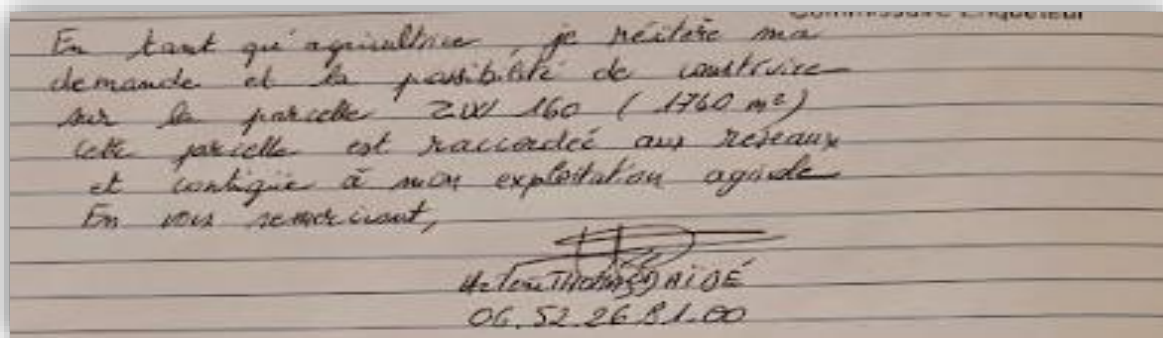 Commissaire Enquêteur
En tant qu'agricultrice je réitère ma
demande et la possibilité de construire
sur la parcelle ZW 160 (1760 m²)
cette parcelle est raccordée aux réseaux
et contigüe à mon exploitation agricole
En vous remerciant,
THOMAS DAIDÉ
06.52.26.81.00